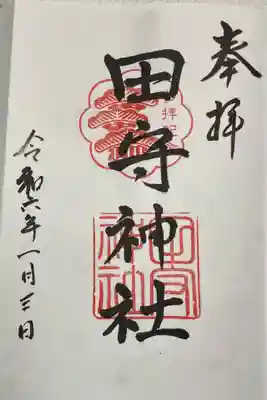 奉拝
田守神社
令和六年一月三日